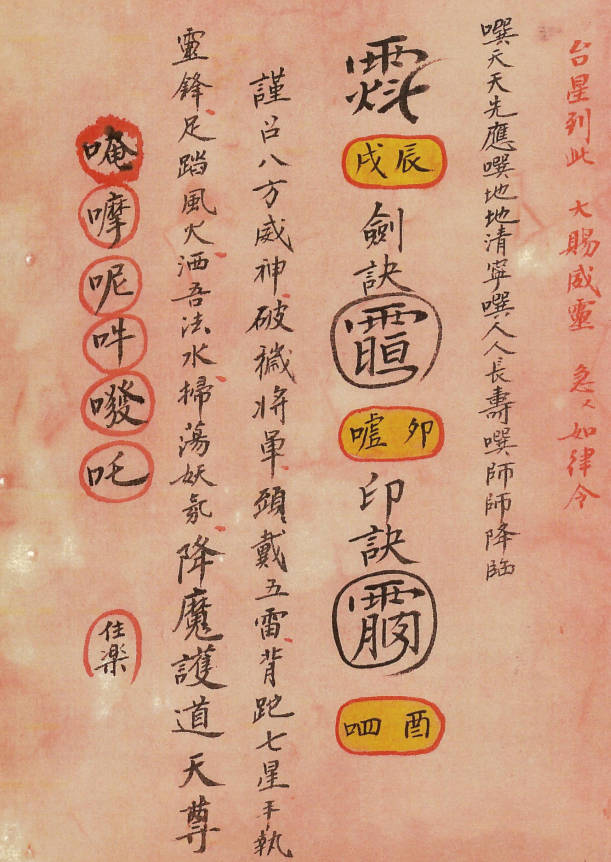 台星到此 大賜威靈 急〻如律令
噀天天先應噀地地清寧噀人人長壽噀師師降臨
辰戌 劍訣 卯噓 印訣 酉呬
謹召八方威神破穢將軍頭戴五雷背跎七星手執
靈鋒足踏風火洒吾法水掃蕩妖氛降魔護道天尊
唵嚤呢吽吒 住楽